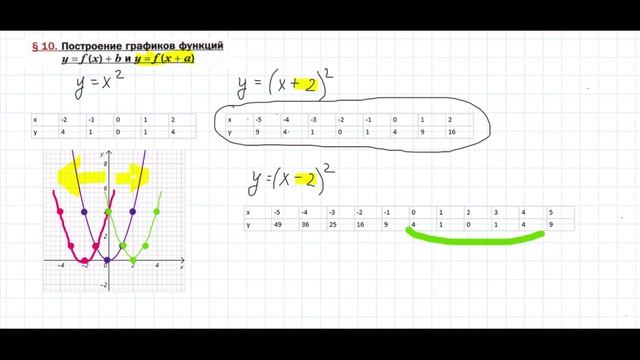 § 10. Построение графиков функций
y = f (x) + b и y = f (x + a)
y = x²
y = (x + 2)²
x -2 -1 0 1 2
y 4 1 0 1 4
x -5 -4 -3 -2 -1 0 1 2
y 9 4 1 0 1 4 9 16
y = (x - 2)²
x -5 -4 -3 -2 -1 0 1 2 3 4 5
y 49 36 25 16 9 4 1 0 1 4 9
y
8
6
4
2
-4 -2 0 2 4 x
-2